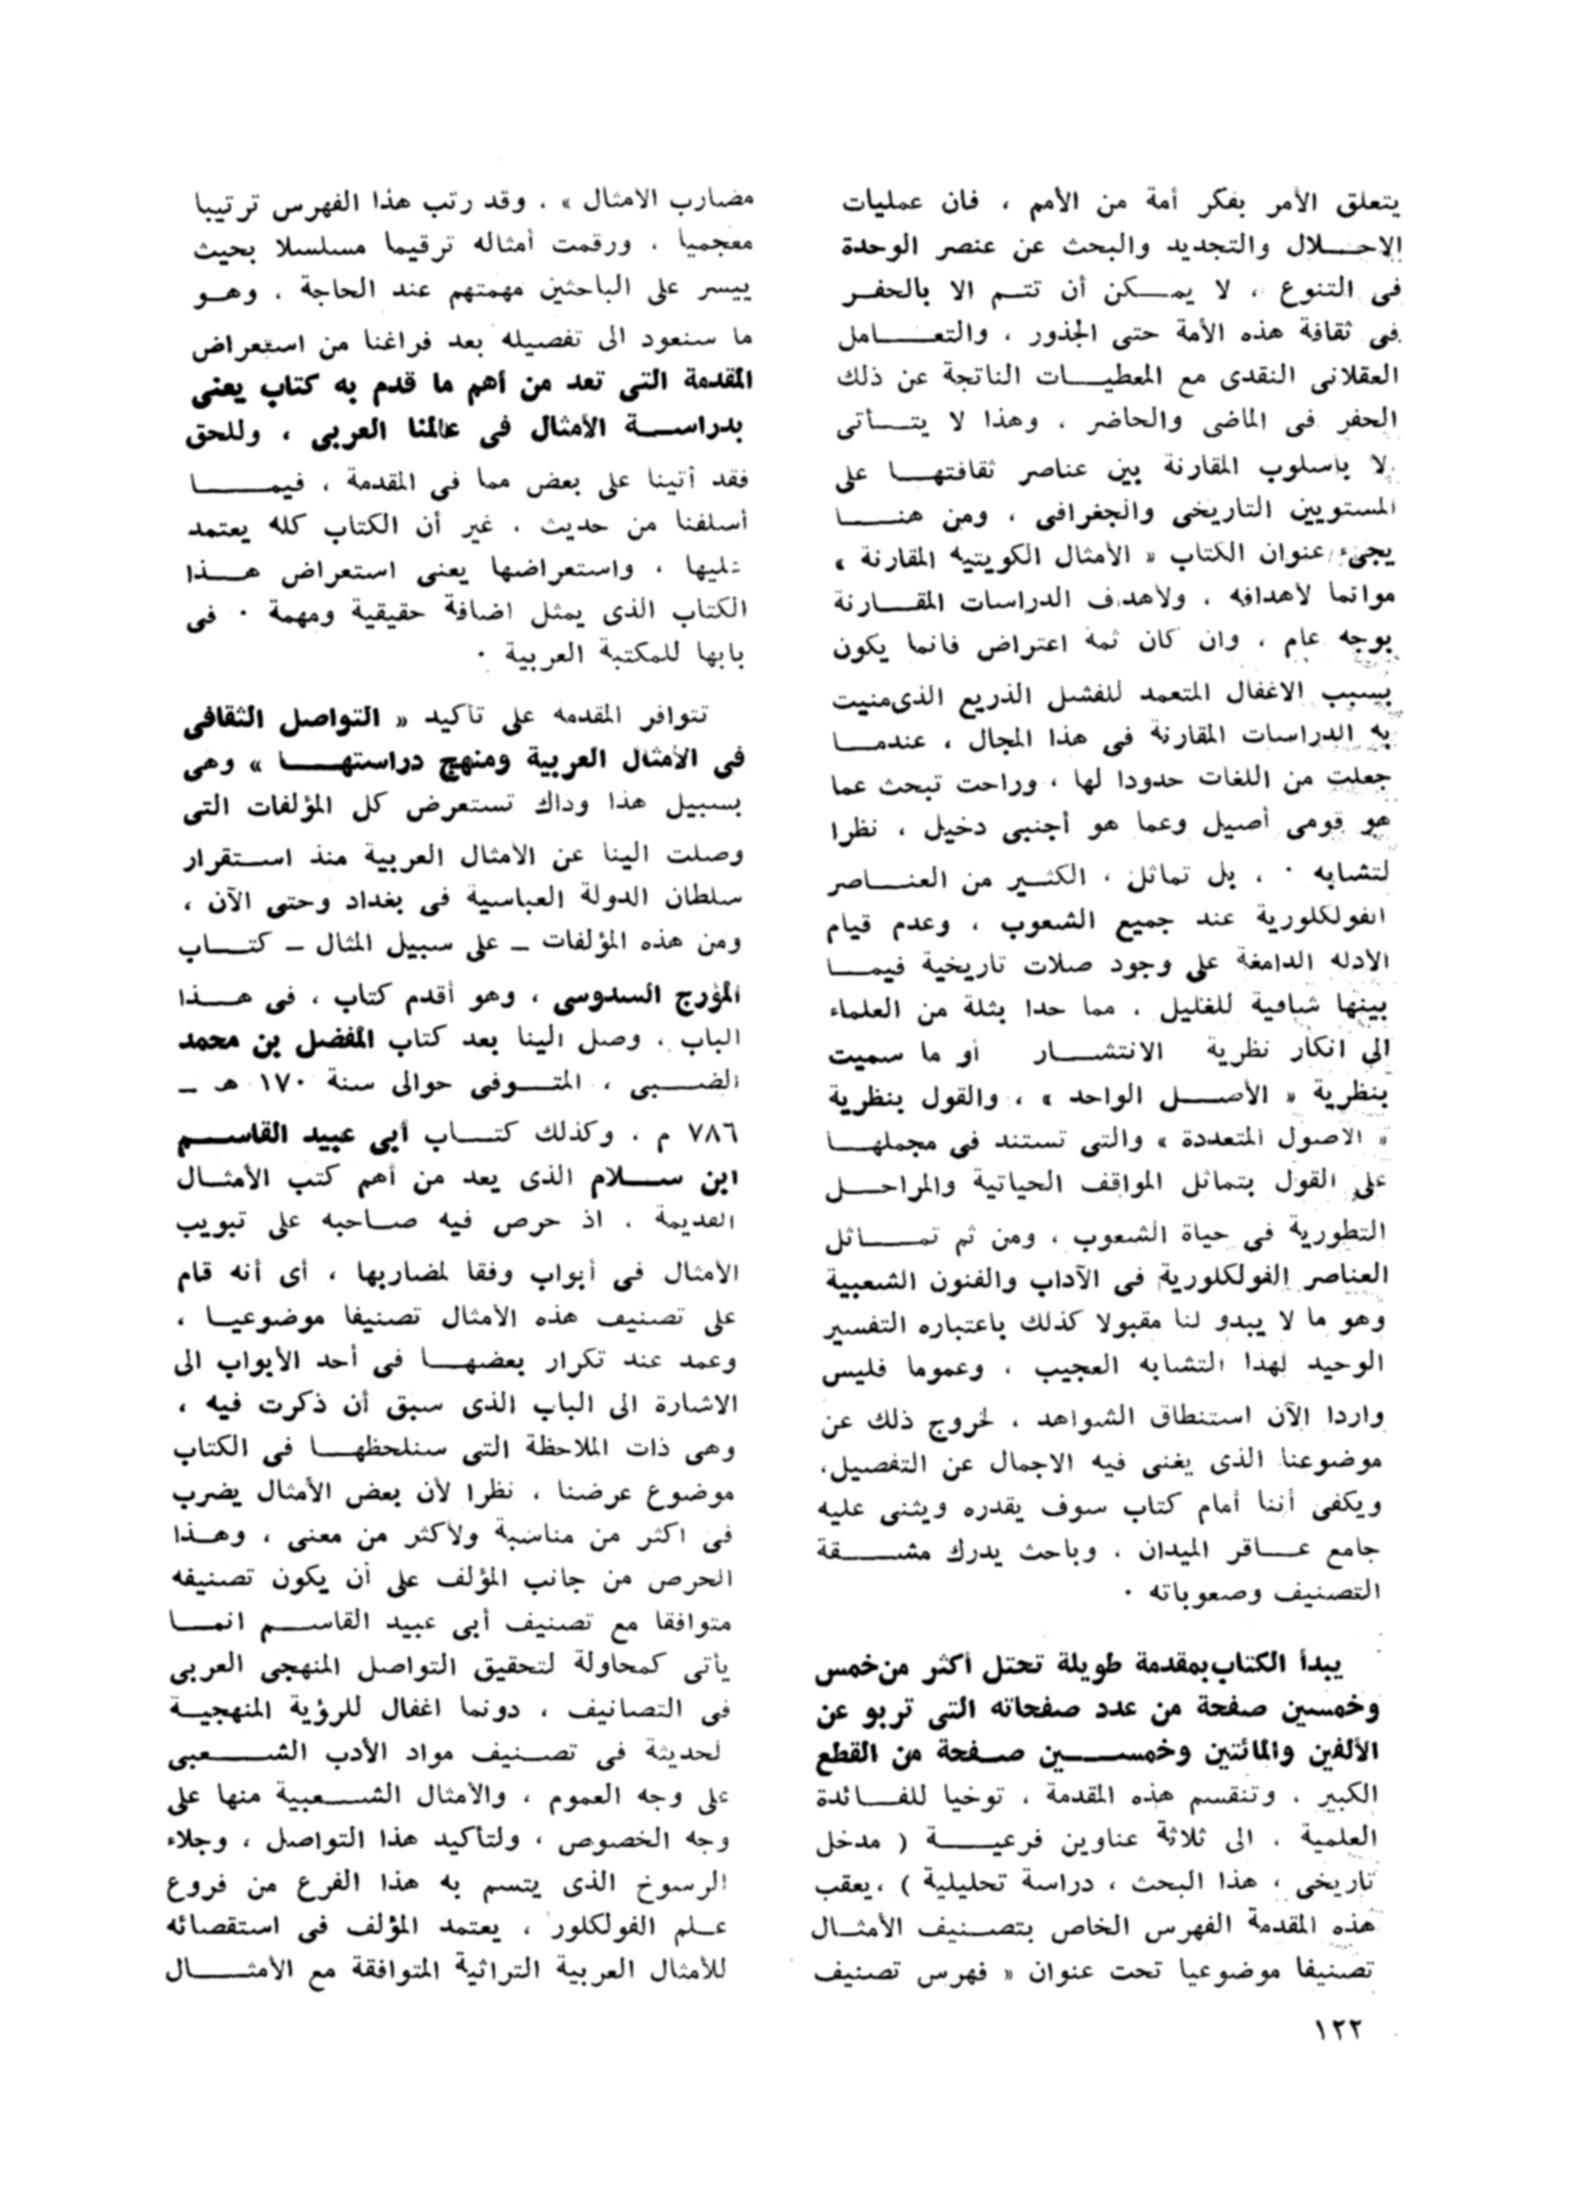 يتعلق الأمر بفكر أمة من الأمم ، فان عمليات
الاحلال والتجديد والبحث عن عنصر الوحدة
فى التنوع ، لا يمكن أن تتم الا بالحفر
فى ثقافة هذه الأمة حتى الجذور ، والتعامل
العقلانى النقدى مع المعطيات الناتجة عن ذلك
الحفر فى الماضى والحاضر ، وهذا لا يتأتى
لا بأسلوب المقارنة بين عناصر ثقافتها على
المستويين التاريخى والجغرافى ، ومن هنا
يجىء عنوان الكتاب « الأمثال الكويتية المقارنة »
موائما لأهدافه ، ولأهداف الدراسات المقارنة
بوجه عام ، وان كان ثمة اعتراض فانما يكون
بسبب الاغفال المتعمد للفشل الذريع الذى منيت
به الدراسات المقارنة فى هذا المجال ، عندما
جعلت من اللغات حدودا لها ، وراحت تبحث عما
هو قومى أصيل وعما هو أجنبى دخيل ، نظرا
لتشابه ٠ ، بل تماثل ، الكثير من العناصر
الفولكلورية عند جميع الشعوب ، وعدم قيام
الأدلة الدامغة على وجود صلات تاريخية فيما
بينها شافية للغليل ، مما حدا بثلة من العلماء
الى انكار نظرية الانتشار أو ما سميت
بنظرية « الأصل الواحد » ، والقول بنظرية
« الاصول المتعددة » والتى تستند فى مجملها
على القول بتماثل المواقف الحياتية والمراحل
التطورية فى حياة الشعوب ، ومن ثم تماثل
العناصر الفولكلورية فى الآداب والفنون الشعبية
وهو ما لا يبدو لنا مقبولا كذلك باعتباره التفسير
الوحيد لهذا التشابه العجيب ، وعموما فليس
واردا الآن استنطاق الشواهد ، لخروج ذلك عن
موضوعنا الذى يغنى فيه الاجمال عن التفصيل،
ويكفى أننا أمام كتاب سوف يقدره ويثنى عليه
جامع عاقر الميدان ، وباحث يدرك مشقة
التصنيف وصعوباته ٠
يبدأ الكتاب بمقدمة طويلة تحتل أكثر من خمس
وخمسين صفحة من عدد صفحاته التى تربو عن
الألفين والمائتين وخمسين صفحة من القطع
الكبير ، وتنقسم هذه المقدمة ، توخيا للفائدة
العلمية ، الى ثلاثة عناوين فرعية ( مدخل
تاريخى ، هذا البحث ، دراسة تحليلية ) ، يعقب
هذه المقدمة الفهرس الخاص بتصنيف الأمثال
تصنيفا موضوعيا تحت عنوان « فهرس تصنيف
مضارب الامثال » ، وقد رتب هذا الفهرس ترتيبا
معجميا ، ورقمت أمثاله ترقيما مسلسلا بحيث
ييسر على الباحثين مهمتهم عند الحاجة ، وهو
ما سنعود الى تفصيله بعد فراغنا من استعراض
المقدمة التى تعد من أهم ما قدم به كتاب يعنى
بدراسة الأمثال فى عالمنا العربى ، وللحق
فقد أتينا على بعض مما فى المقدمة ، فيما
أسلفنا من حديث ، غير أن الكتاب كله يعتمد
عليها ، واستعراضها يعنى استعراض هذا
الكتاب الذى يمثل اضافة حقيقية ومهمة ٠ فى
بابها للمكتبة العربية ٠
تتوافر المقدمة على تأكيد « التواصل الثقافى
فى الأمثال العربية ومنهج دراستها » وهى
بسبيل هذا وذاك تستعرض كل المؤلفات التى
وصلت الينا عن الأمثال العربية منذ استقرار
سلطان الدولة العباسية فى بغداد وحتى الآن ،
ومن هذه المؤلفات ـ على سبيل المثال ـ كتاب
المؤرج السدوسى ، وهو أقدم كتاب ، فى هذا
الباب ، وصل الينا بعد كتاب المفضل بن محمد
الضبى ، المتوفى حوالى سنة ١٧٠ هـ ـ
٧٨٦ م ، وكذلك كتاب أبى عبيد القاسم
ابن سلام الذى يعد من أهم كتب الأمثال
القديمة ، اذ حرص فيه صاحبه على تبويب
الأمثال فى أبواب وفقا لمضاربها ، أى أنه قام
على تصنيف هذه الأمثال تصنيفا موضوعيا ،
وعمد عند تكرار بعضها فى أحد الأبواب الى
الاشارة الى الباب الذى سبق أن ذكرت فيه ،
وهى ذات الملاحظة التى سنلحظها فى الكتاب
موضوع عرضنا ، نظرا لأن بعض الأمثال يضرب
فى اكثر من مناسبة ولأكثر من معنى ، وهذا
الحرص من جانب المؤلف على أن يكون تصنيفه
متوافقا مع تصنيف أبى عبيد القاسم انما
يأتى كمحاولة لتحقيق التواصل المنهجى العربى
فى التصانيف ، دونما اغفال للرؤية المنهجية
لحديثة فى تصنيف مواد الأدب الشعبى
على وجه العموم ، والأمثال الشعبية منها على
وجه الخصوص ، ولتأكيد هذا التواصل ، وجلاء
الرسوخ الذى يتسم به هذا الفرع من فروع
علم الفولكلور ، يعتمد المؤلف فى استقصائه
للأمثال العربية التراثية المتوافقة مع الأمثال
١٢٢